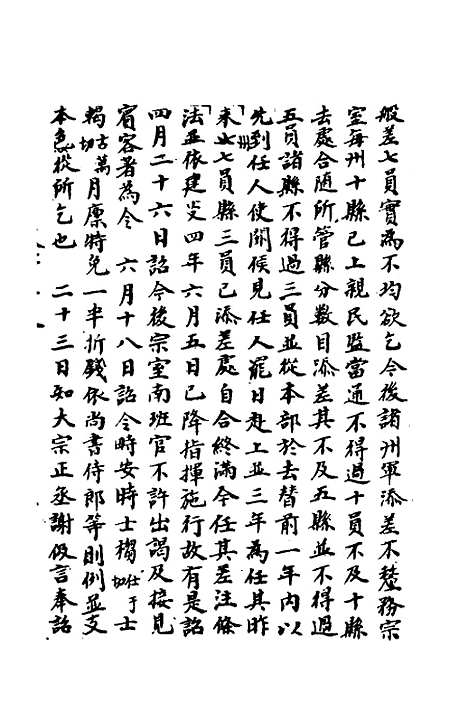 般差七員實為不均欲乞今後諸州軍添差不釐務宗
室每州十縣已上親民監當通不得過十員不及十縣
去處合随所管縣分數目添差其不及五縣並不得過
五員諸縣不得過三員並從本部於去替前一年内以
先到任人使闕候見任人罷日赴上並三年為任其昨
來州七員縣三員已添差處自合終滿今任其差注條
法並依建炎四年六月五日已降指揮施行故有是詔
四月二十六日詔今後宗室南班官不許出謁及接見
賓客著為令　六月十八日詔令時安時士㯹切仕于士
輵切古萬月廪特免一半折錢依尚書侍郎等則例並支
本色從所乞也　二十三日知大宗正丞謝伋言奉詔